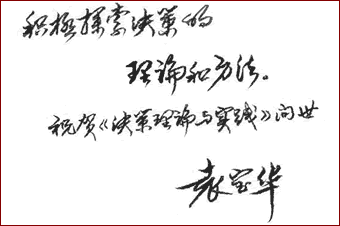 积極探索决策的
理論和方法。
祝贺《决策理論与实践》问世
袁宝华